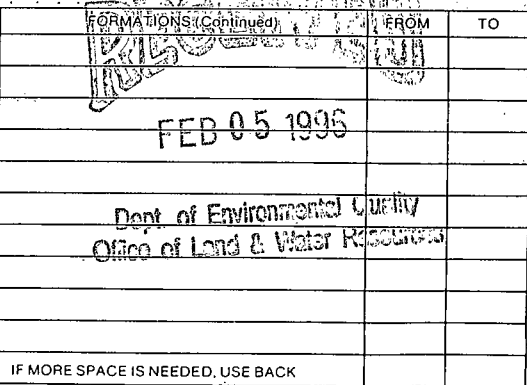 FORMATIONS (Continued) FROM TO
RECEIVED
FEB 05 1996
Dept. of Environmental Quality
Office of Land & Water Resources
IF MORE SPACE IS NEEDED, USE BACK